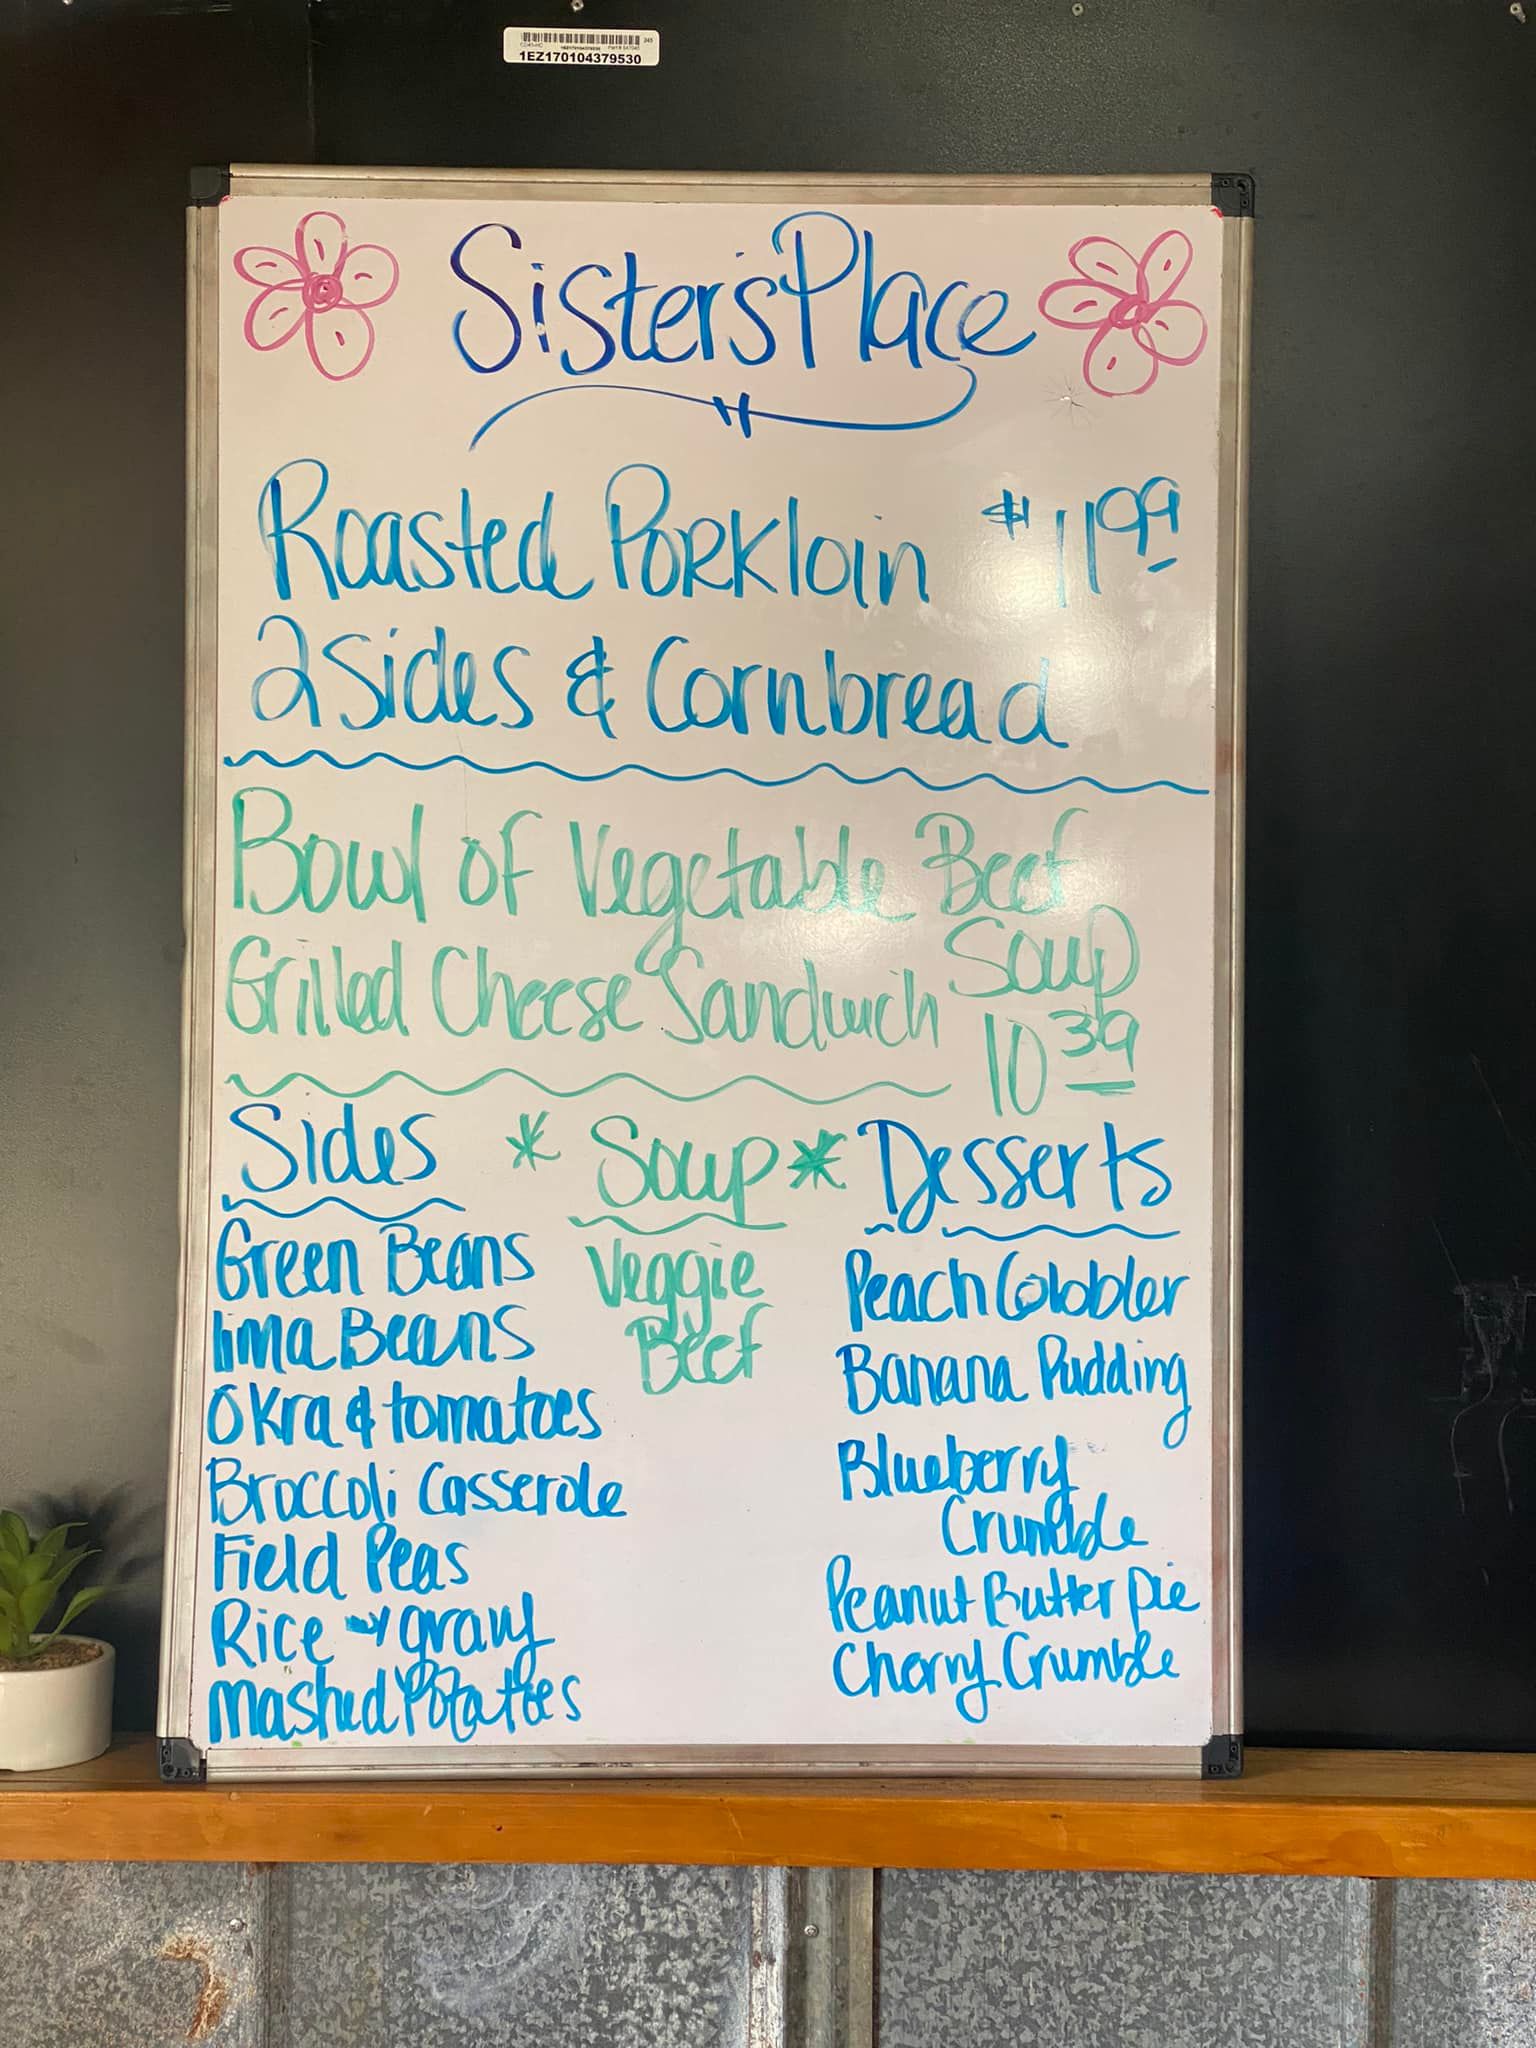 1EZ170104379530
Sister's Place
Roasted Porkloin $11.99
2 Sides & Cornbread
Bowl of Vegetable Beef
Soup
Grilled Cheese Sandwich
10.39
Sides * Soup * Desserts
Green Beans
lima Beans
Okra & tomatoes
Broccoli Casserole
Field Peas
Rice gravy
mashed Potatoes
Veggie
Beef
Peach Cobbler
Banana Pudding
Blueberry
Crumble
Peanut Butter pie
Cherry Crumble